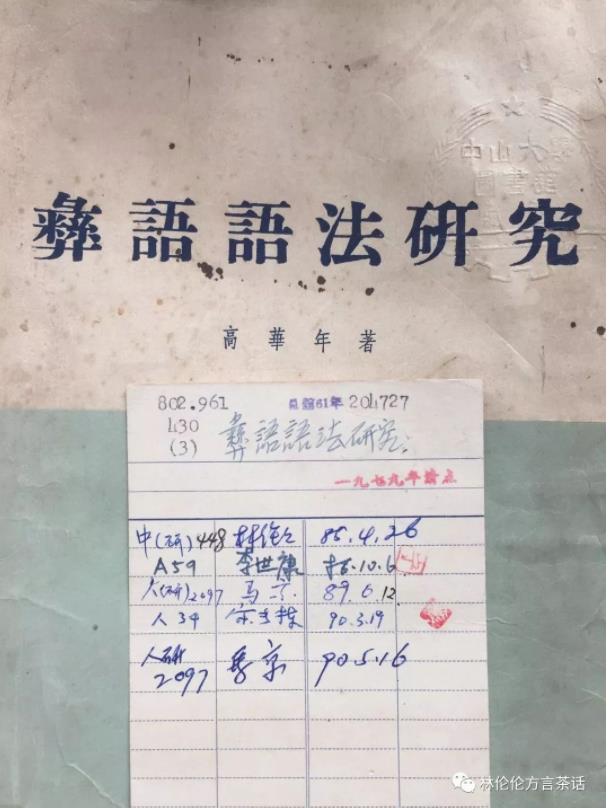 中山大學
圖書館
彝語語法研究
高華年著
802.961
430
(3)
員舘61年 204727
彝語語法研究
一九七九年清点
中(研)448 林伦伦 85.4.26
A59 李世康 10.6
(研)2097 马 89.6.12
人34 宋 90.3.19
人研
2097 京 90.5.16
林伦伦方言茶话